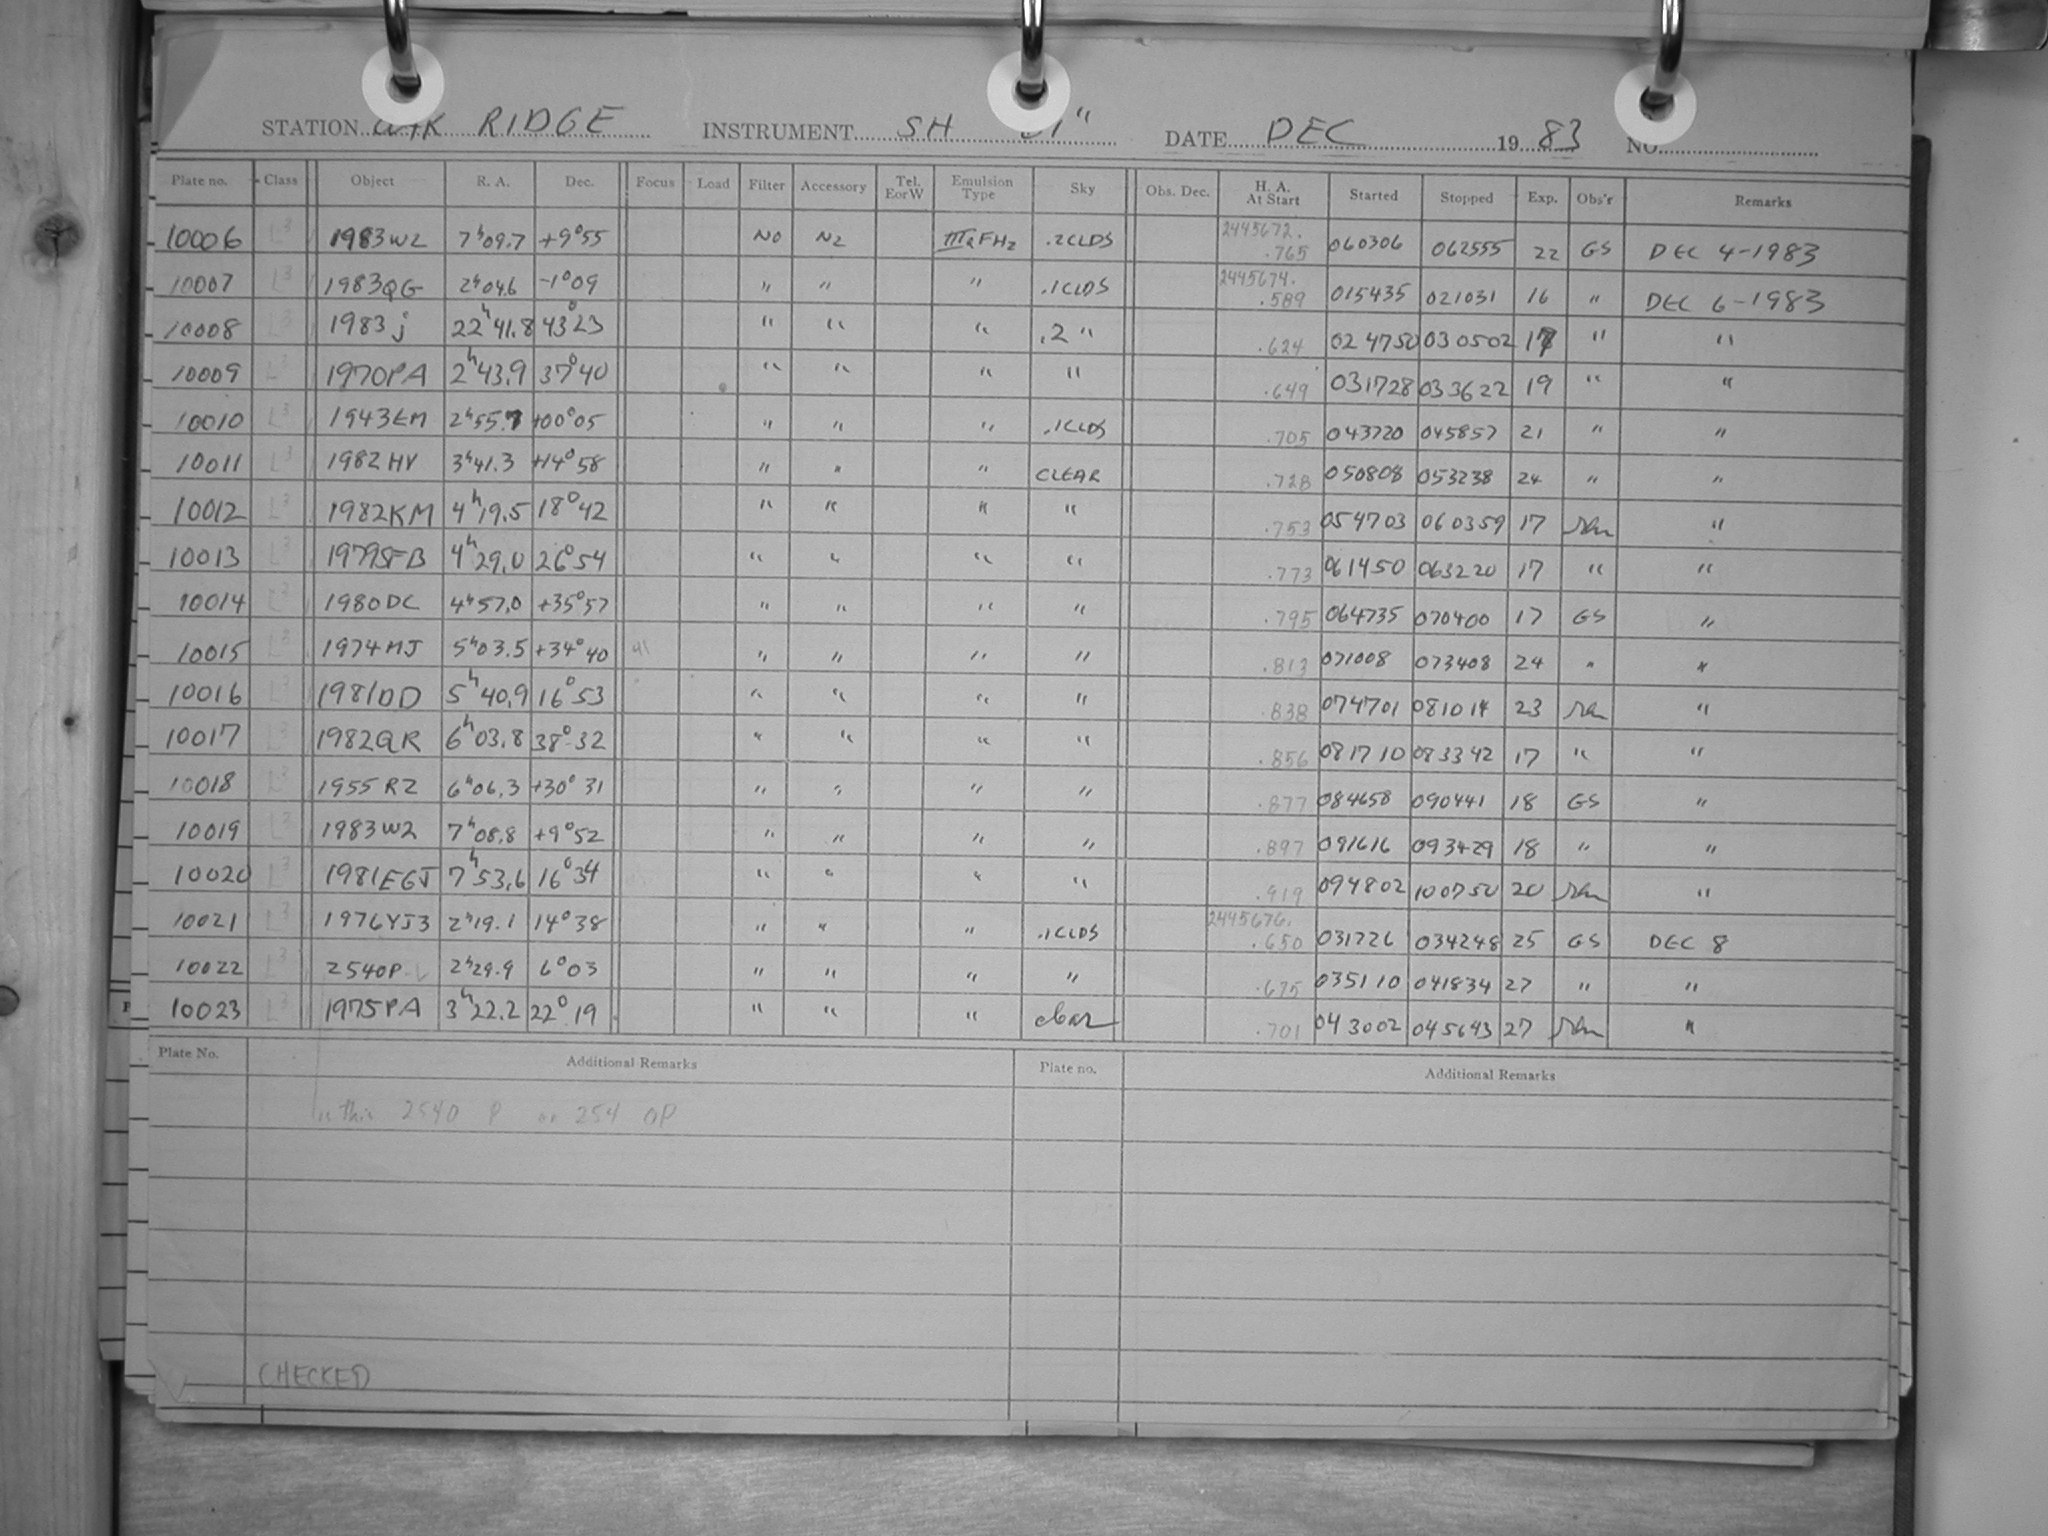 STATION RIDGE INSTRUMENT SH DATE DEC 19 83 NO.
Plate no. Class Object R. A. Dec. Focus Load Filter Accessory Tel. EorW Emulsion Type Sky Obs. Dec. H. A. At Start Started Stopped Exp. Obs'r Remarks
10006 L3 1983WZ 7h09.7 +9°55 NO N2 .2CLDS 2445672. .765 060306 062555 22 GS DEC 4-1983
10007 L3 1983QG 2h04.6 -1°09 " " " .1CLDS 2445674. .589 015435 021031 16 " DEC 6-1983
10008 L3 1983j 22h41.8 43°23 " " " .2 " .624 024750 030502 17 " "
10009 L3 1970PA 2h43.9 37°40 " " " " .649 031728 033622 19 " "
10010 L3 1943EM 2h55.7 +00°05 " " " .1CLDS .705 043720 045857 21 " "
10011 L3 1982HV 3h41.3 +14°58 " " " CLEAR .728 050808 053238 24 " "
10012 L3 1982KM 4h19.5 18°42 " " " " .753 054703 060359 17 "
10013 L3 1979SFB 4h29.0 26°54 " " " " .773 061450 063220 17 " "
10014 L3 1980DC 4h57.0 +35°57 " " " " .795 064735 070400 17 GS "
10015 L3 1974MJ 5h03.5 +34°40 " " " " .813 071008 073408 24 " "
10016 L3 1981DD 5h40.9 16°53 " " " " .838 074701 081014 23 "
10017 L3 1982QR 6h03.8 38°32 " " " " .856 081710 083342 17 " "
10018 L3 1955RZ 6h06.3 +30°31 " " " " .877 084658 090441 18 GS "
10019 L3 1983WZ 7h08.8 +9°52 " " " " .897 091616 093429 18 " "
10020 L3 1981EGJ 7h53.6 16°34 " " " " .919 094802 100750 20 "
10021 L3 1976YJ3 2h19.1 14°38 " " " .1CLDS 2445676. .650 031726 034248 25 GS DEC 8
10022 L3 2540P 2h29.9 6°03 " " " " .675 035110 041834 27 " "
10023 L3 1975PA 3h22.2 22°19 " " " clear .701 043002 045643 27 "
Plate No. Additional Remarks Plate no. Additional Remarks
is this 2540 P or 254 OP
CHECKED